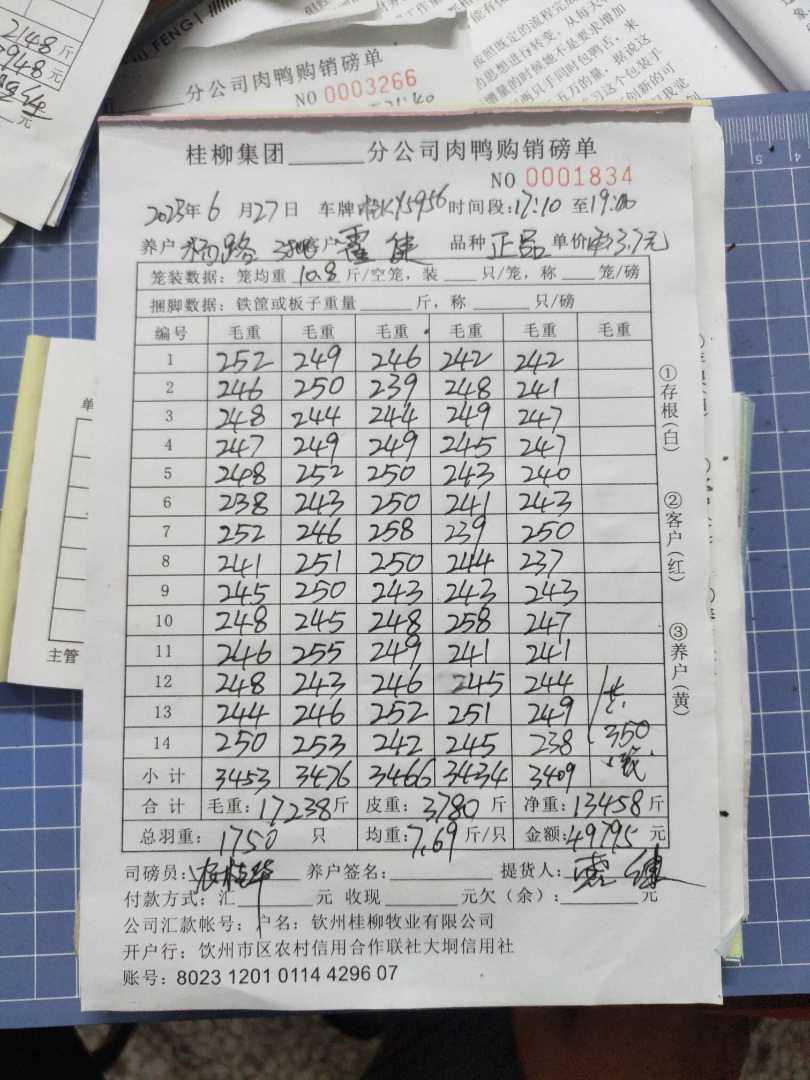 2148斤
948元
元
分公司肉鸭购销磅单
NO 0003266
21:40
桂柳集团______分公司肉鸭购销磅单
NO 0001834
2023年6月27日 车牌 KY5956 时间段:17:10 至19:00
养户 客户 霍健 品种 正品 单价 3.7元
笼装数据：笼均重 10.8 斤/空笼，装____只/笼，称____笼/磅
捆脚数据：铁筐或板子重量______斤，称______只/磅
编号 毛重 毛重 毛重 毛重 毛重 毛重
1 252 249 246 242 242
2 246 250 239 248 241
3 248 244 244 249 247
4 247 249 249 245 247
5 248 252 250 243 240
6 238 243 250 241 243
7 252 246 258 239 250
8 241 251 250 244 237
9 245 250 243 243 243
10 248 245 248 258 247
11 246 255 249 241 241
12 248 243 246 245 244
13 244 246 252 251 249 共
14 250 253 242 245 238 350
小计 3453 3476 3466 3434 3409
合计 毛重：17238斤 皮重：3780斤 净重：13458斤
总羽重：1750 只 均重：7.69斤/只 金额：49795元
司磅员： 养户签名：______ 提货人：霍健
付款方式：汇______元 收现______元欠（余）：______元
公司汇款帐号：户名：钦州桂柳牧业有限公司
开户行：饮州市区农村信用合作联社大垌信用社
账号：8023 1201 0114 4296 07
①存根（白）
②客户（红）
③养户（黄）
主管